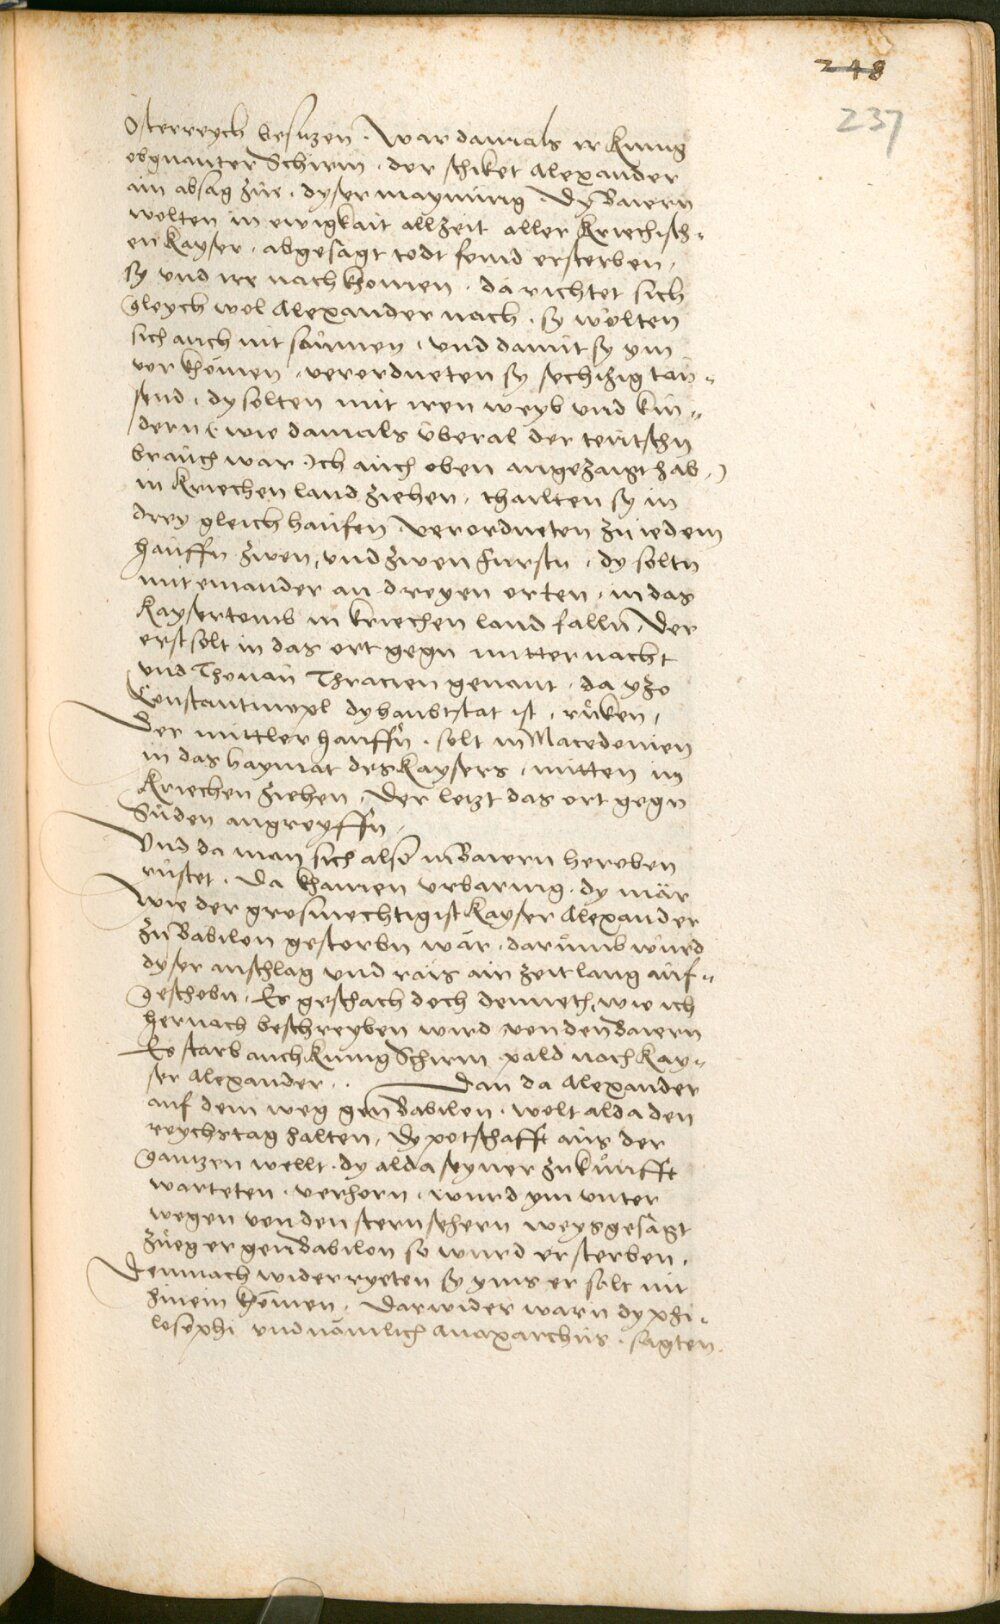 248
237
Osterreych besitzen . War damals ir Kunig
obgnanter Schirm . der schiket Alexander
ain absag zue . dyser maynung Dy Baiern
wolten in ewigkait allzeit aller Kriechisch=
en Kayser . abgesagt todt feind ersterben ,
sy und ire nachkhomen . da richtet sich
gleych wol Alexander nach . sy wolten
sich auch nit saumen . und damit sy ym
vor khomen , verordneten sy sechizig tau=
send , dy solten mit iren weyb und kin=
dern ( wie damals uberal der teutschn
brauch war Ich auch oben angezaigt hab . )
in Kriechen land ziehen , thailten sy in
drey gleich haufen . verordneten zu iedem
hauffn zwen , und zwen Furstn . dy soltn
mit einander an dreyen orten , in das
Kaysertomb in kriechen land falln , Der
erst solt in das ort gegn mitternacht
und Thonau Thracien genant . da yzo
Constantinopl dy haubtstat ist , ruken ,
Der mittler hauffn . solt in Macedonien
in das haymat des Kaysers , mitten in
Kriechen ziehen , Der letzt das ort gegn
Suden angreyffn ,
Und da man sich also in Baiern heroben
rustet . Da khamen urbaring . dy mär
wie der grosmechtigist Kayser Alexander
zu Babilon gestorbn wär . darumb wurd
dyser anschlag und rais ain zeit lang auf=
geschobn . Es geschach doch denneth , wie ich
hernach beschreyben wird von den Baiern
Es starb auch Kunig Schirm pald nach Kay=
ser Alexander . . Dan da Alexander
auf dem weg gen Babilon . wolt alda den
reychstag halten , Dy potschafft aus der
gantzen wellt . dy alda seyner zukunfft
warteten . verhorn . wurd ym unter
wegen von den sternsehern weysgesagt
zueg er gen Babilon so wurd er sterben .
Demnach widerryeten sy yms er solt nit
hinein khomen . Darwider warn dy phi=
losophi und nämlich Anaxarchus . sagten